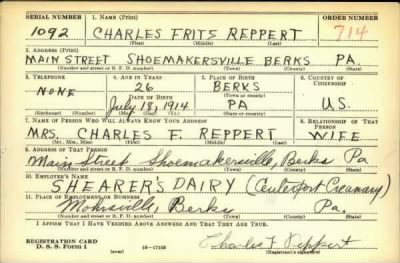 SERIAL NUMBER 1. NAME (Print) ORDER NUMBER
1092 CHARLES FRITS REPPERT 714
(First) (Middle) (Last)
2. ADDRESS (Print)
MAIN STREET SHOEMAKERSVILLE BERKS PA.
(Number and street or R. F. D. number) (Town) (County) (State)
3. TELEPHONE 4. AGE IN YEARS 5. PLACE OF BIRTH 6. COUNTRY OF CITIZENSHIP
NONE 26 BERKS
DATE OF BIRTH (Town or county)
July 18, 1914 PA U.S.
(Mo.) (Day) (Yr.) (State or country)
7. NAME OF PERSON WHO WILL ALWAYS KNOW YOUR ADDRESS 8. RELATIONSHIP OF THAT PERSON
MRS. CHARLES F. REPPERT WIFE
(Mr., Mrs., Miss) (First) (Middle) (Last)
9. ADDRESS OF THAT PERSON
Main Street Shoemakersville, Berks Pa
(Number and street or R. F. D. number) (Town) (County) (State)
10. EMPLOYER'S NAME
SHEARER'S DAIRY (Centerport Creamery)
11. PLACE OF EMPLOYMENT OR BUSINESS
Mohrsville, Berks Pa.
(Number and street or R. F. D. number) (Town) (County) (State)
I AFFIRM THAT I HAVE VERIFIED ABOVE ANSWERS AND THAT THEY ARE TRUE.
REGISTRATION CARD
D. S. S. Form 1 (over) 16—17105 Charles F Reppert
(Registrant's signature)